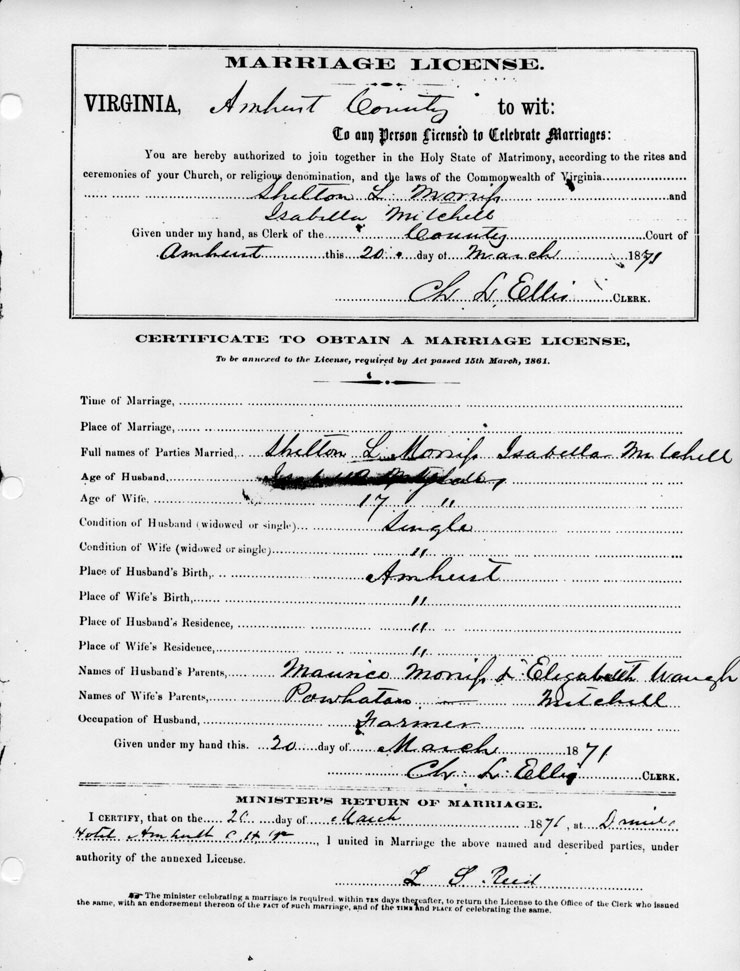 MARRIAGE LICENSE.
VIRGINIA, Amherst County to wit:
To any Person Licensed to Celebrate Marriages:
You are hereby authorized to join together in the Holy State of Matrimony, according to the rites and
ceremonies of your Church, or religious denomination, and the laws of the Commonwealth of Virginia
Shelton L. Morriss and
Isabella Mitchell
Given under my hand, as Clerk of the County Court of
Amherst this 20 day of March 1871
Ch L Ellis CLERK.
CERTIFICATE TO OBTAIN A MARRIAGE LICENSE,
To be annexed to the License, required by Act passed 15th March, 1861.
Time of Marriage,
Place of Marriage,
Full names of Parties Married, Shelton L. Morriss Isabella Mitchell
Age of Husband,
Age of Wife, 17 "
Condition of Husband (widowed or single) Single
Condition of Wife (widowed or single) "
Place of Husband's Birth, Amherst
Place of Wife's Birth, "
Place of Husband's Residence, "
Place of Wife's Residence, "
Names of Husband's Parents, Maurice Morriss & Elizabeth Waugh
Names of Wife's Parents, Powhatan — Mitchell
Occupation of Husband, Farmer
Given under my hand this 20 day of March 1871
Ch L Ellis CLERK.
MINISTER'S RETURN OF MARRIAGE.
I CERTIFY, that on the 20 day of March 1871, at
Hotel Amherst C. H. Va, I united in Marriage the above named and described parties, under
authority of the annexed License.
L S Reid
The minister celebrating a marriage is required, within TEN days thereafter, to return the License to the Office of the Clerk who issued
the same, with an endorsement thereon of the FACT of such marriage, and of the TIME and PLACE of celebrating the same.